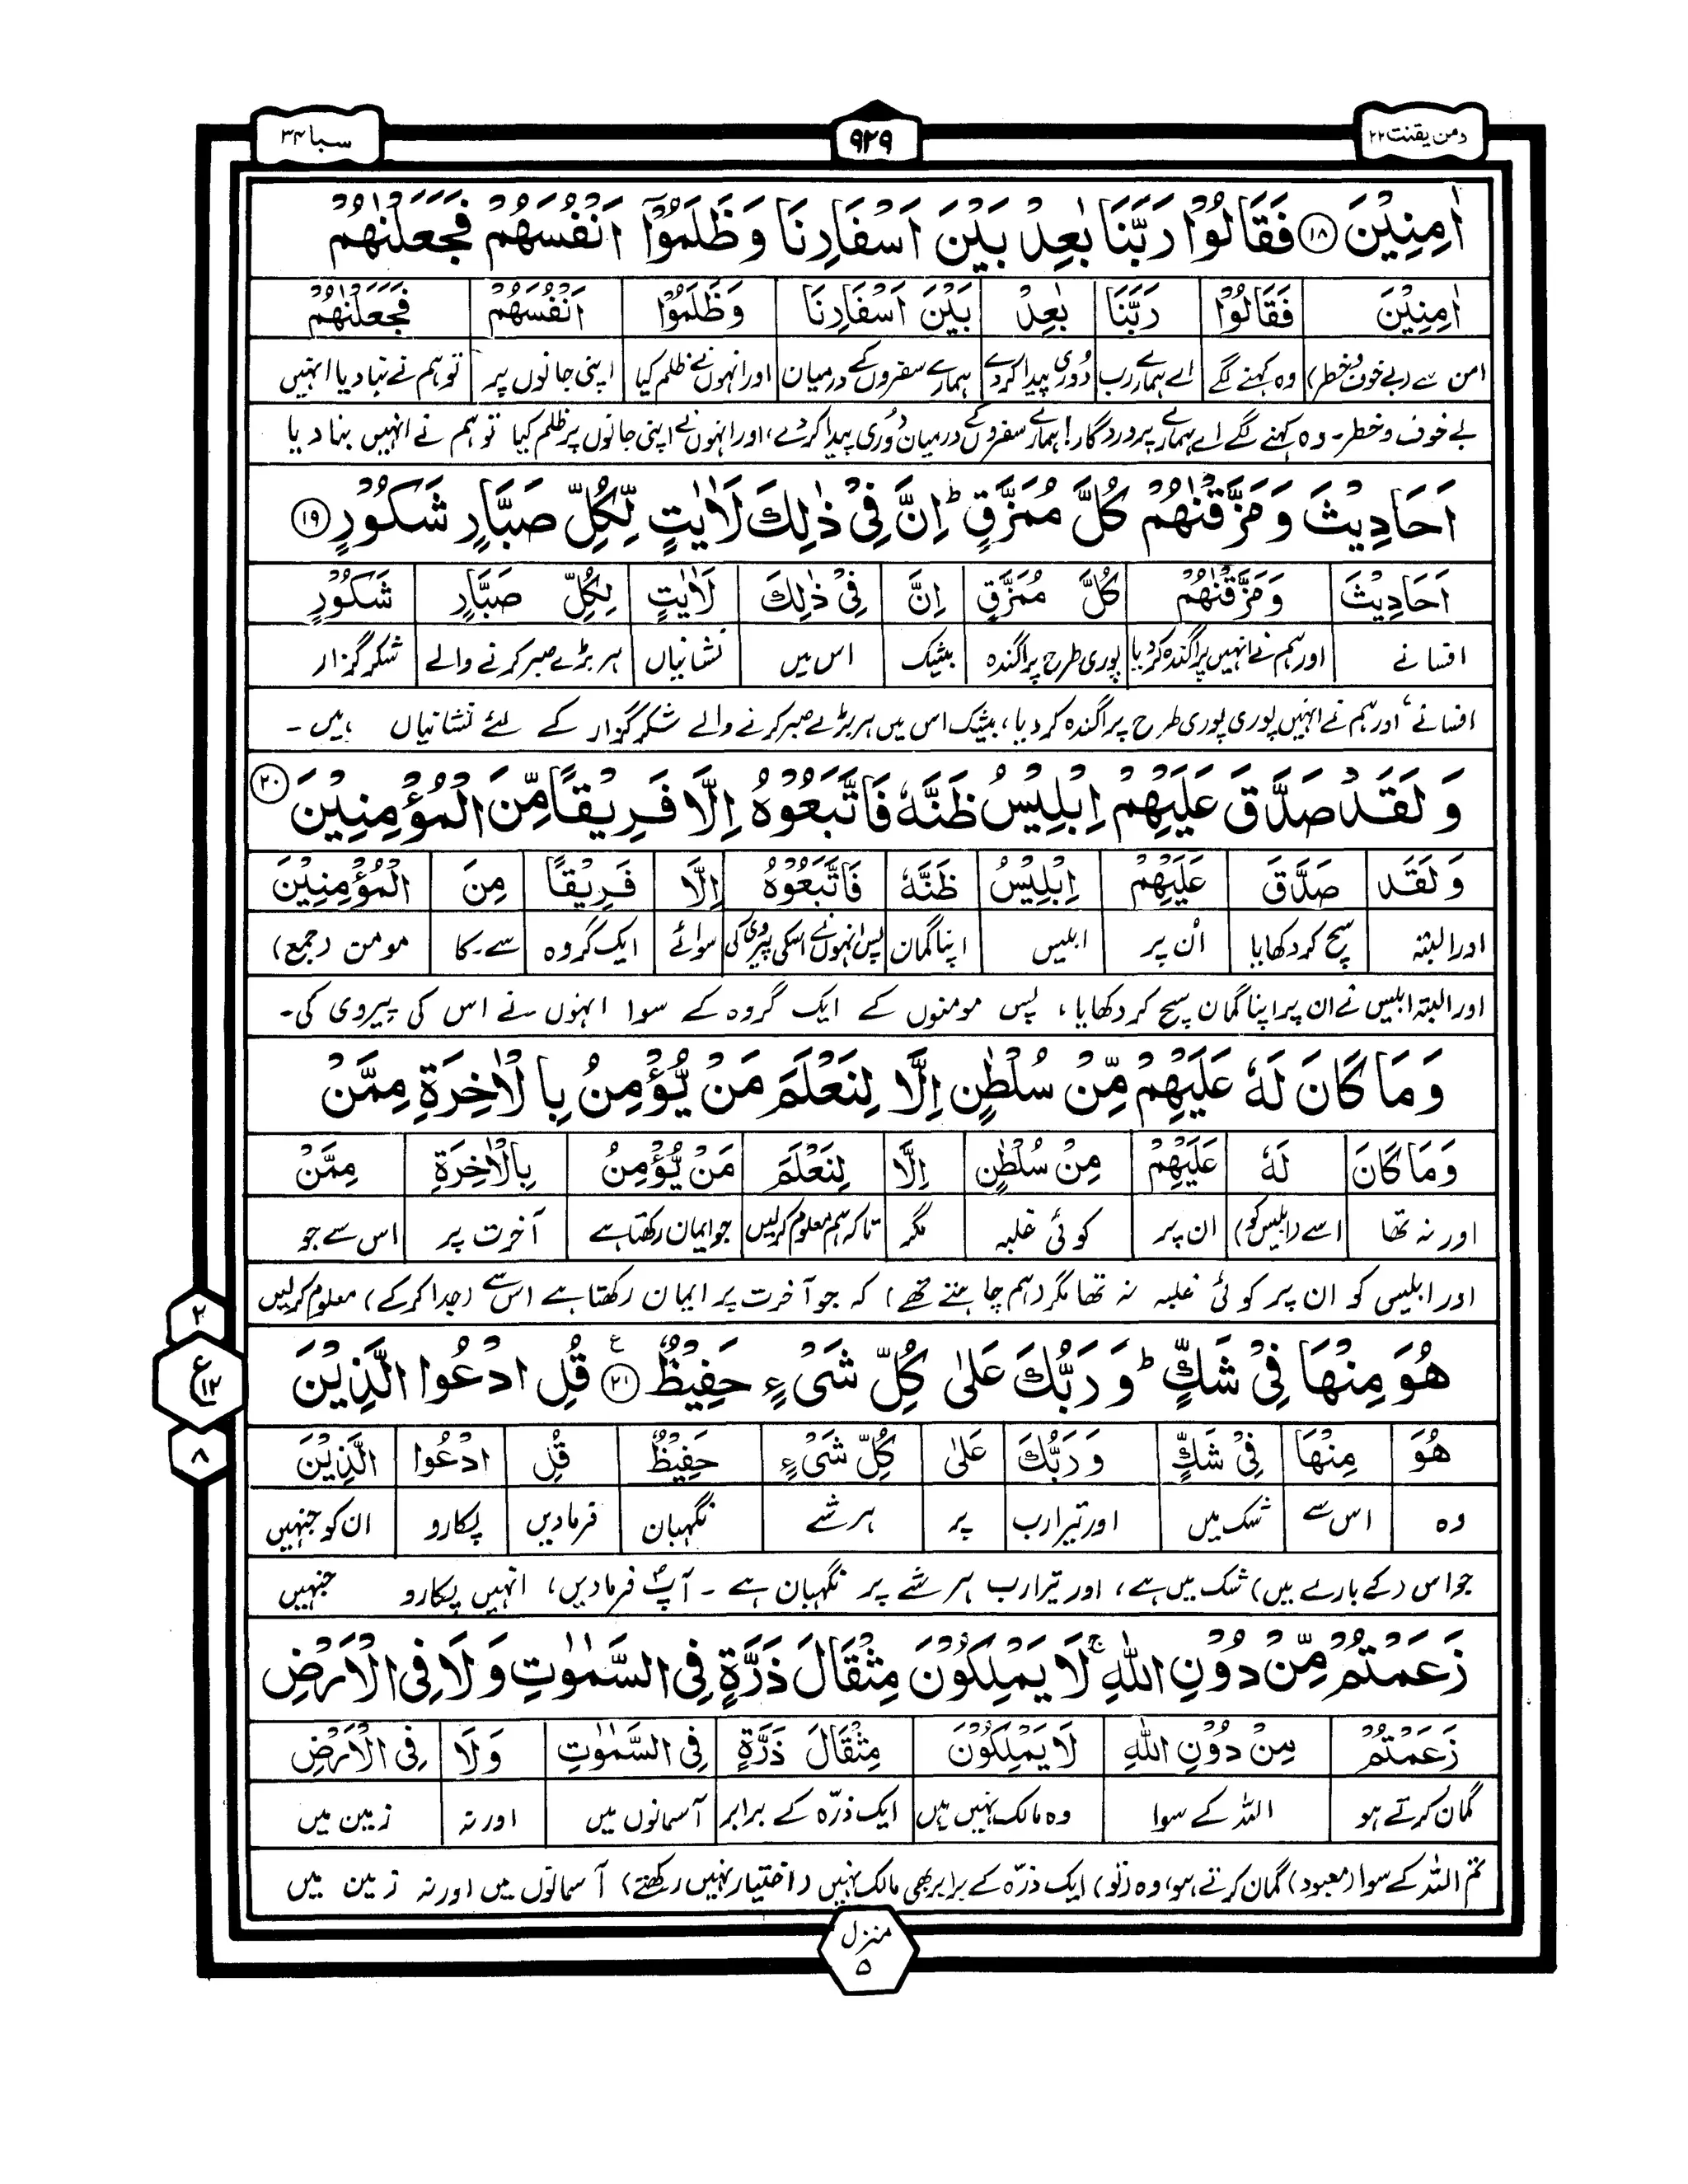 ومن یقنت ۲۲
۹۲۹
سبا ۳۴
اٰمِنِیْنَ ﴿۱۸﴾ فَقَالُوْا رَبَّنَا بٰعِدْ بَیْنَ اَسْفَارِنَا وَ ظَلَمُوْۤا اَنْفُسَهُمْ فَجَعَلْنٰهُمْ
اٰمِنِیْنَ فَقَالُوْا رَبَّنَا بٰعِدْ بَیْنَ اَسْفَارِنَا وَظَلَمُوْا اَنْفُسَهُمْ فَجَعَلْنٰهُمْ
امن سے (بے خوف و خطر) وہ کہنے لگے اے ہمارے رب دُوری پیدا کردے ہمارے سفروں کے درمیان اور انہوں نے ظلم کیا اپنی جانوں پر تو ہم نے بنا دیا انہیں
بے خوف و خطر۔ وہ کہنے لگے اے ہمارے پروردگار! ہمارے سفروں کے درمیان دُوری پیدا کردے، اور انہوں نے اپنی جانوں پر ظلم کیا تو ہم نے انہیں بنا دیا
اَحَادِیْثَ وَ مَزَّقْنٰهُمْ كُلَّ مُمَزَّقٍ ؕ اِنَّ فِیْ ذٰلِكَ لَاٰیٰتٍ لِّكُلِّ صَبَّارٍ شَكُوْرٍ ﴿۱۹﴾
اَحَادِیْثَ وَمَزَّقْنٰهُمْ كُلَّ مُمَزَّقٍ اِنَّ فِیْ ذٰلِكَ لَاٰیٰتٍ لِكُلِّ صَبَّارٍ شَكُوْرٍ
افسانے اور ہم نے انہیں پراگندہ کردیا پوری طرح پراگندہ بیشک اس میں نشانیاں ہر بڑے صبر کرنے والے شکر گزار
افسانے، اور ہم نے انہیں پوری پوری طرح پراگندہ کردیا، بیشک اس میں ہر بڑے صبر کرنے والے شکر گزار کے لئے نشانیاں ہیں۔
وَ لَقَدْ صَدَّقَ عَلَیْهِمْ اِبْلِیْسُ ظَنَّهٗ فَاتَّبَعُوْهُ اِلَّا فَرِیْقًا مِّنَ الْمُؤْمِنِیْنَ ﴿۲۰﴾
وَ لَقَدْ صَدَّقَ عَلَیْهِمْ اِبْلِیْسُ ظَنَّهٗ فَاتَّبَعُوْهُ اِلَّا فَرِیْقًا مِنَ الْمُؤْمِنِیْنَ
اور البتہ سچ کر دکھایا اُن پر ابلیس اپنا گمان پس انہوں نے اسکی پیروی کی سوائے ایک گروہ سے۔ کا مومن (جمع)
اور البتہ ابلیس نے ان پر اپنا گمان سچ کر دکھایا، پس مومنوں کے ایک گروہ کے سوا انہوں نے اس کی پیروی کی۔
وَ مَا كَانَ لَهٗ عَلَیْهِمْ مِّنْ سُلْطٰنٍ اِلَّا لِنَعْلَمَ مَنْ یُّؤْمِنُ بِالْاٰخِرَةِ مِمَّنْ
وَمَا كَانَ لَهٗ عَلَیْهِمْ مِنْ سُلْطٰنٍ اِلَّا لِنَعْلَمَ مَنْ یُّؤْمِنُ بِالْاٰخِرَةِ مِمَّنْ
اور نہ تھا اسے (ابلیس کو) ان پر کوئی غلبہ مگر تاکہ ہم معلوم کرلیں جو ایمان رکھتا ہے آخرت پر اس سے جو
اور ابلیس کو ان پر کوئی غلبہ نہ تھا مگر (ہم چاہتے تھے) کہ جو آخرت پر ایمان رکھتا ہے اس سے (جدا کرکے) معلوم کرلیں
هُوَ مِنْهَا فِیْ شَكٍّ ؕ وَ رَبُّكَ عَلٰی كُلِّ شَیْءٍ حَفِیْظٌ ﴿۲۱﴾ ع قُلِ ادْعُوا الَّذِیْنَ
هُوَ مِنْهَا فِیْ شَكٍّ وَ رَبُّكَ عَلٰی كُلِّ شَیْءٍ حَفِیْظٌ قُلِ ادْعُوا الَّذِیْنَ
وہ اس سے شک میں اور تیرا رب پر ہر شے نگہبان فرمادیں پکارو ان کو جنہیں
جو اس (کے بارے میں) شک میں ہے، اور تیرا رب ہر شے پر نگہبان ہے۔ آپؐ فرمادیں، انہیں پکارو جنہیں
زَعَمْتُمْ مِّنْ دُوْنِ اللّٰهِ ۚ لَا یَمْلِكُوْنَ مِثْقَالَ ذَرَّةٍ فِی السَّمٰوٰتِ وَ لَا فِی الْاَرْضِ
زَعَمْتُمْ مِنْ دُوْنِ اللّٰهِ لَا یَمْلِكُوْنَ مِثْقَالَ ذَرَّةٍ فِی السَّمٰوٰتِ وَلَا فِی الْاَرْضِ
گمان کرتے ہو اللہ کے سوا وہ مالک نہیں ہیں ایک ذرّہ کے برابر آسمانوں میں اور نہ زمین میں
تم اللہ کے سوا (معبود) گمان کرتے ہو، وہ (تو) ایک ذرّہ کے برابر بھی مالک نہیں (اختیار نہیں رکھتے) آسمانوں میں اور نہ زمین میں
۲
ع ۱۲
۸
منزل
۵